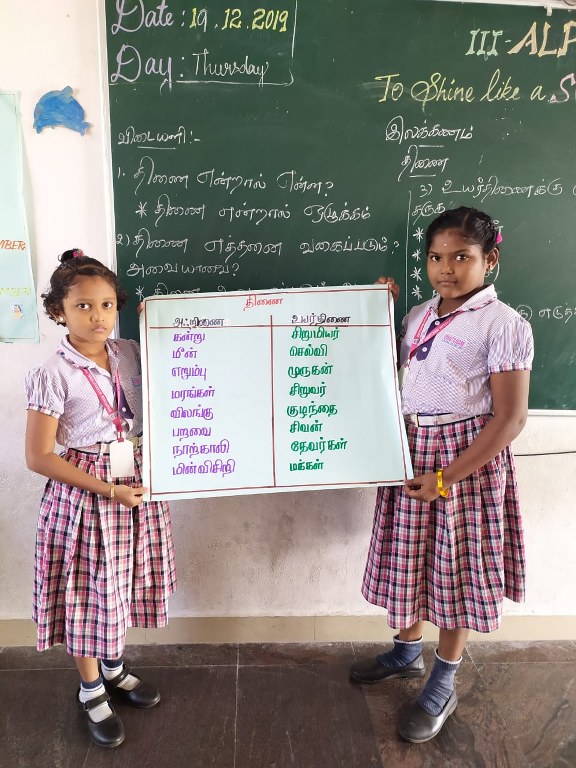 Date: 19.12.2019
Day: Thursday
III-ALP
To Shine like a S
விடையளி:-
1. திணை என்றால் என்ன?
* திணை என்றால் ஒழுக்கம்
2) திணை எத்தனை வகைப்படும்?
அவை யாவை?
இலக்கணம்
திணை
3) உயர்திணைக்கு
தருக
திணை
அஃறிணை உயர்திணை
கன்று சிறுமியர்
மீன் செல்வி
எறும்பு முருகன்
மரங்கள் சிறுவர்
விலங்கு குழந்தை
பறவை சிவன்
நாற்காலி தேவர்கள்
மின்விசிறி மக்கள்